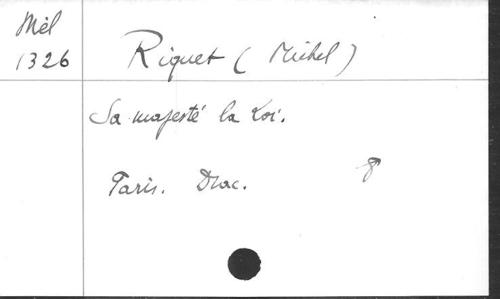 Mél
1326
Riquet (Michel)
Sa majesté la Loi.
Paris. Drac.
8